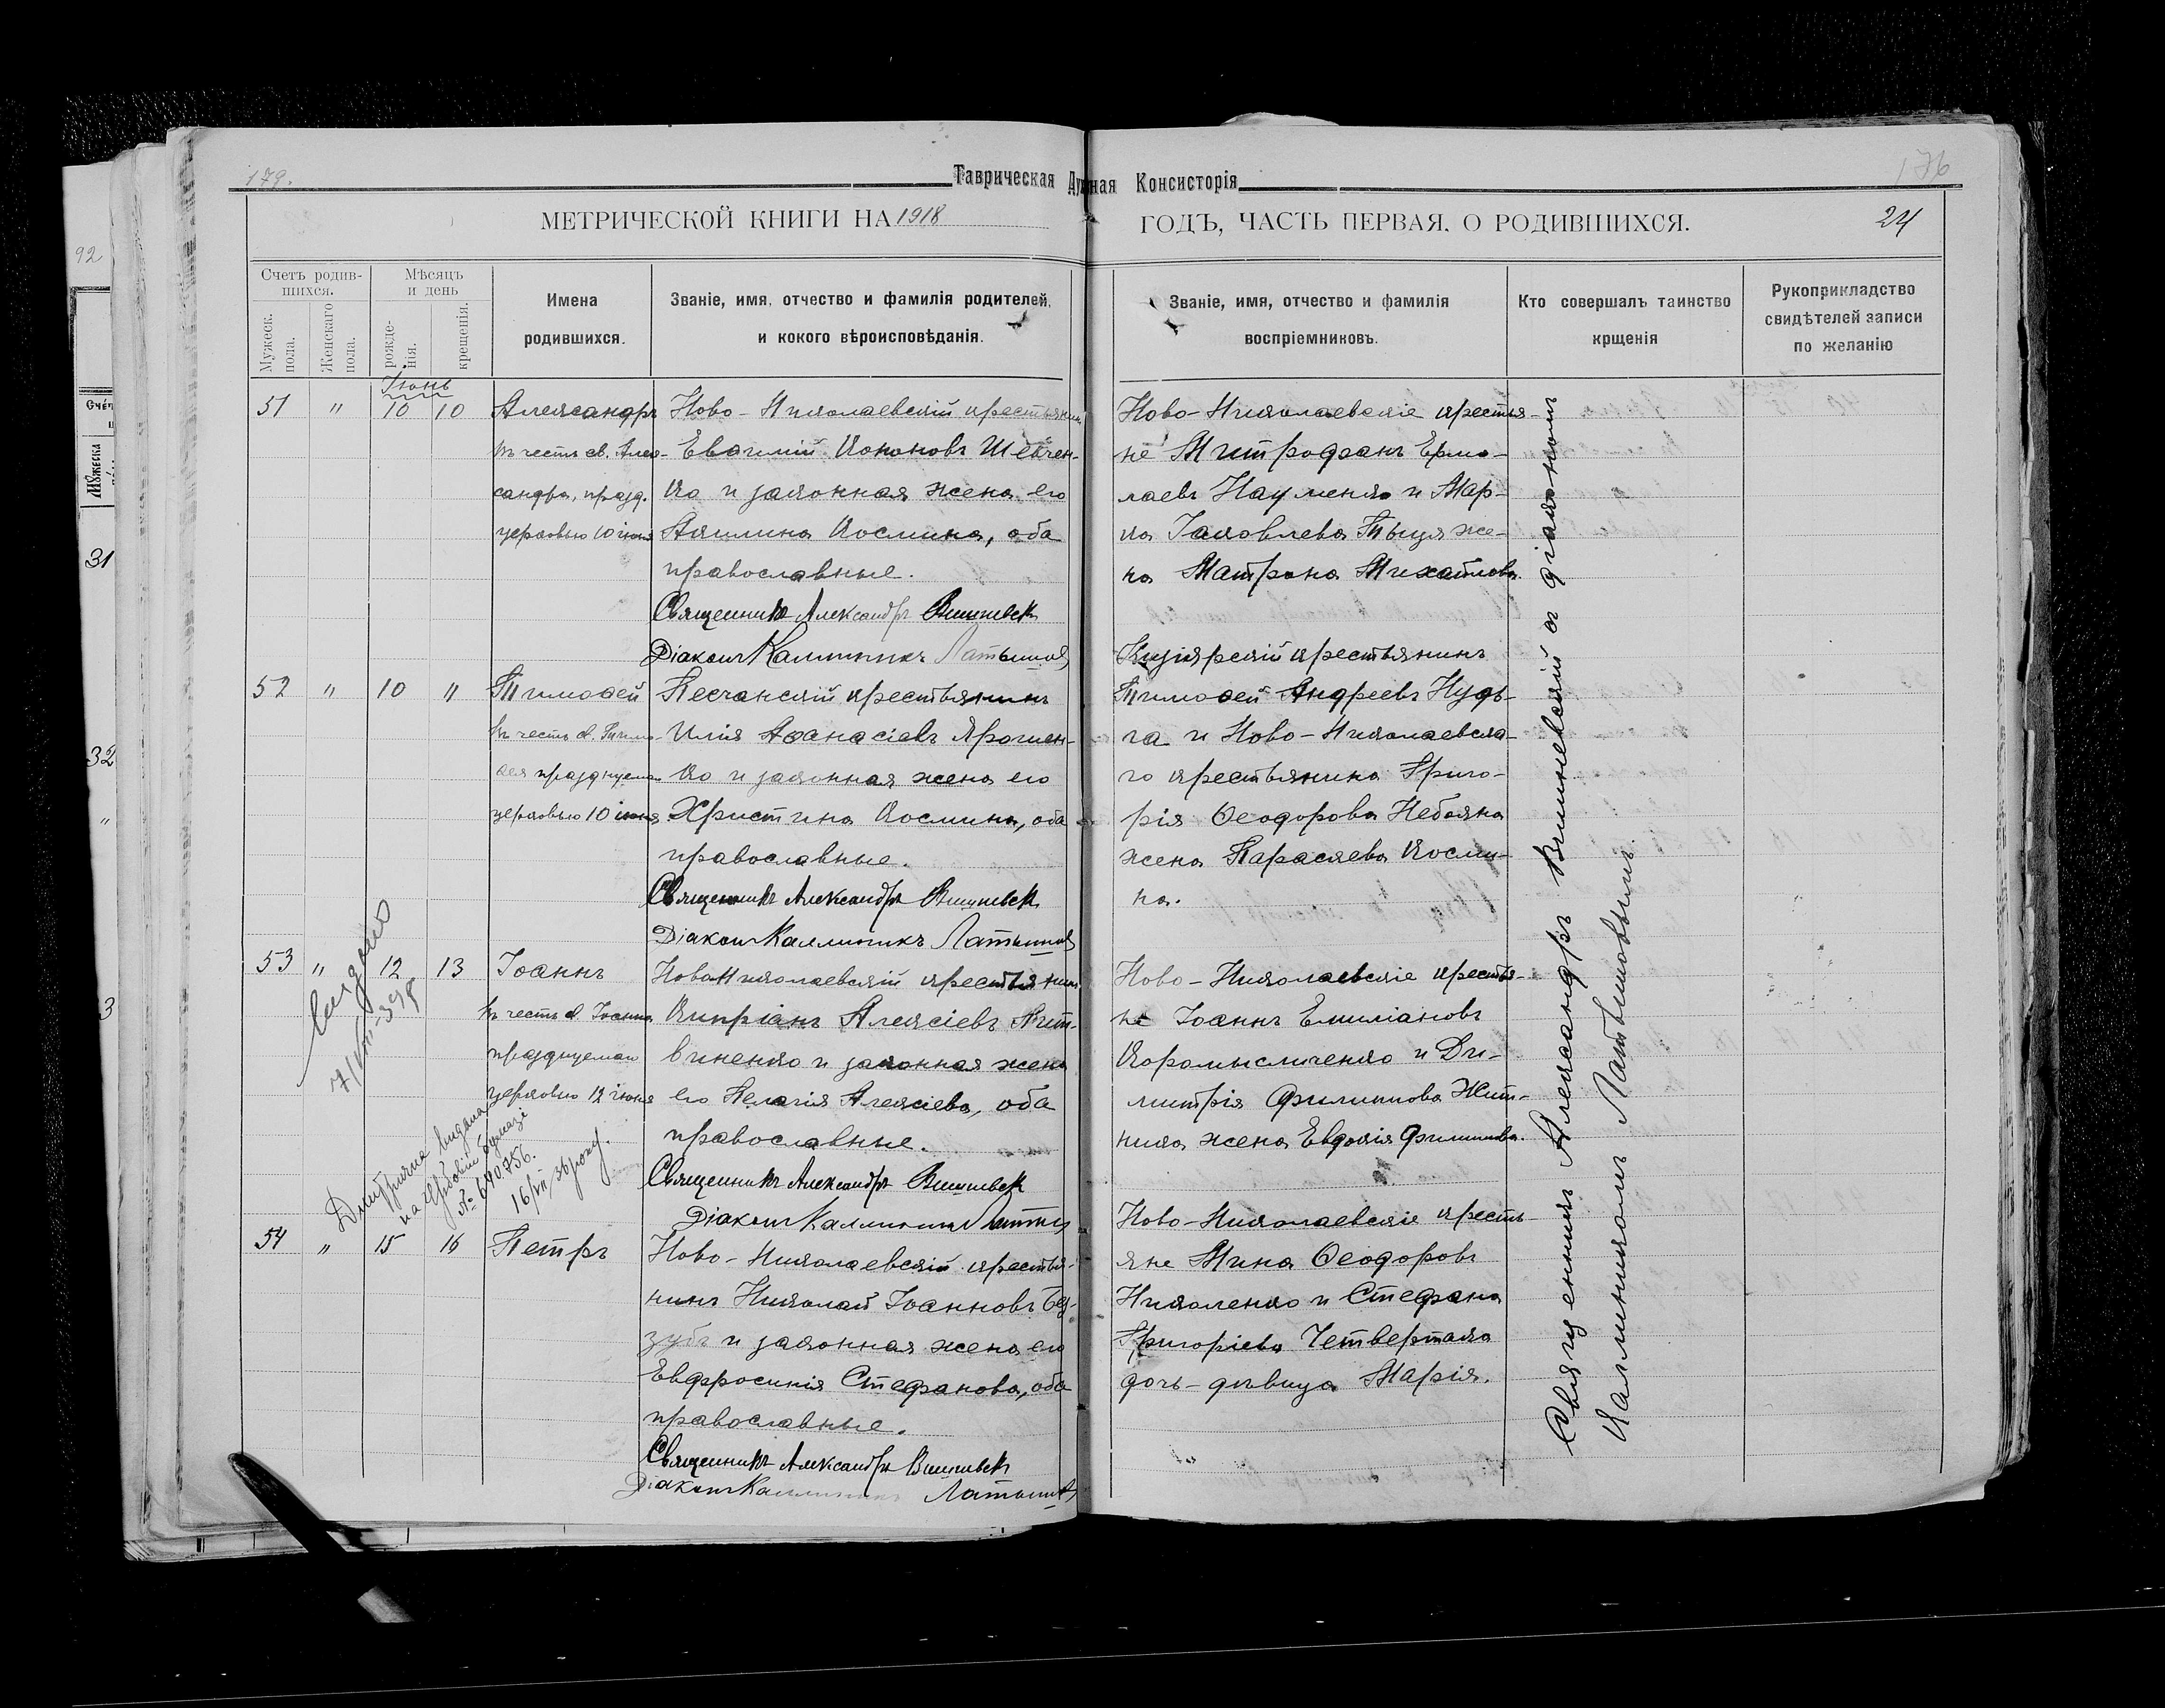 179.
Таврическая Духная Консисторія
176
МЕТРИЧЕСКОЙ КНИГИ НА 1918
ГОДЪ, ЧАСТЬ ПЕРВАЯ. О РОДИВШИХСЯ.
24
Счетъ родив-
шихся.
Мужеск. пола.
Женскаго пола.
Мѣсяцъ
и день
рожде-
нія.
крещенія.
Имена
родившихся.
Званіе, имя, отчество и фамилія родителей,
и кокого вѣроисповѣданія.
Званіе, имя, отчество и фамилія
воспріемниковъ.
Кто совершалъ таинство
крщенія
Рукоприкладство
свидѣтелей записи
по желанію
Іюнь
51 " 10 10
Александръ
въ честь св. Алек-
сандра, празд.
церковью 10 іюня
Ново-Николаевскій крестьянинъ
Евѳимій Кононовъ Шевчен-
ко и законная жена его
Акилина Космина, оба
православные.
Священникъ Александръ Вишневск
Діаконъ Каллиникъ Латышов
Ново-Николаевскіе крестья-
не Митрофанъ Ермо-
лаевъ Науменко и Мар-
ка Іаковлева Тыця же-
на Матрона Михайлова.
52 " 10 "
Тимоѳей
въ честь св. Тимо-
ѳея празднуемаго
церковью 10 іюня
Песчанскій крестьянинъ
Илія Аѳанасіевъ Ярошен-
ко и законная жена его
Христина Космина, оба
православные.
Священникъ Александръ Вишневск
Діаконъ Каллиникъ Латышов
крестьянинъ
Тимоѳей Андреевъ Нудь-
га и Ново-Николаевска-
го крестьянина Григо-
рія Ѳеодорова Небояка
жена Параскева Косми-
на.
53 " 12 13
Іоаннъ
въ честь св. Іоанна
празднуемаго
церковью 12 іюня
Ново-Николаевскій крестьянинъ
Кипріанъ Алексіевъ Лит-
виненко и законная жена
его Пелагія Алексіева, оба
православные.
Священникъ Александръ Вишневск
Діаконъ Каллиникъ Латыш
Ново-Николаевскіе крестья-
не Іоаннъ Емиліановъ
Коромысличенко и Ди-
митрія Филиппова Жит-
ника жена Евдокія Филиппова.
7/VIII-39
выдана
№ 690756.
16/VII 36 року.
54 " 15 16
Петръ
Ново-Николаевскій крестья-
нинъ Николай Іоанновъ Без-
зубъ и законная жена его
Евфросинія Стефанова, оба
православные.
Священникъ Александръ Вишневск
Діаконъ Каллиникъ Латышов
Ново-Николаевскіе кресть-
яне Мина Ѳеодоровъ
Николенко и Стефана
Григоріева Четвертака
дочь-дѣвица Марія.
Священникъ Александръ Вишневскій съ діакономъ
Каллиникомъ Латышовымъ.
92
31
32
3